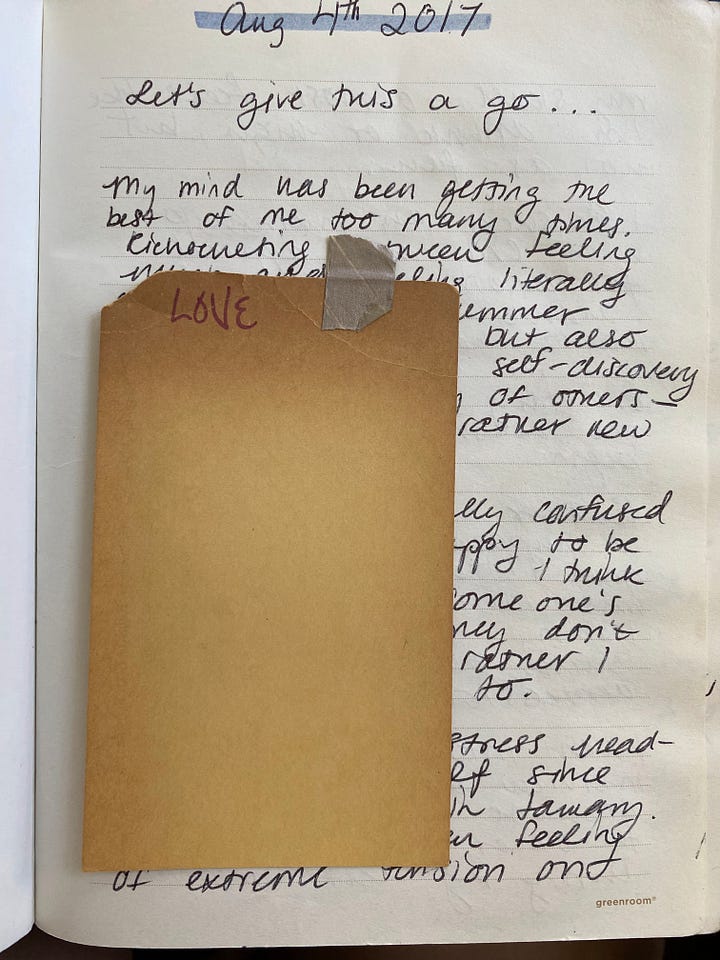 Aug 4th 2017
Let's give this a go...
My mind has been getting the
best of me too many times.
Richocheting ween feeling
literally
LOVE
ummer
but also
self-discovery
of others—
rather new
lly confused
ppy to be
I think
ome one's
hey don't
rather I
to.
stress head-
elf since
in January.
en feeling
of extreme tension and
greenroom®